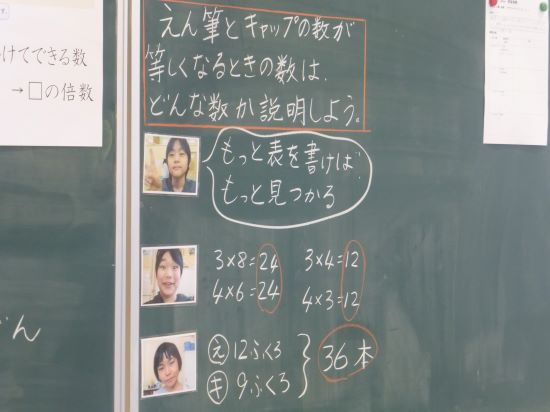 けてできる数
→□の倍数
えん筆とキャップの数が
等しくなるときの数は、
どんな数か説明しよう。
もっと表を書けば
もっと見つかる
3×8=24 3×4=12
4×6=24 4×3=12
え 12ふくろ
キ 9ふくろ
36本